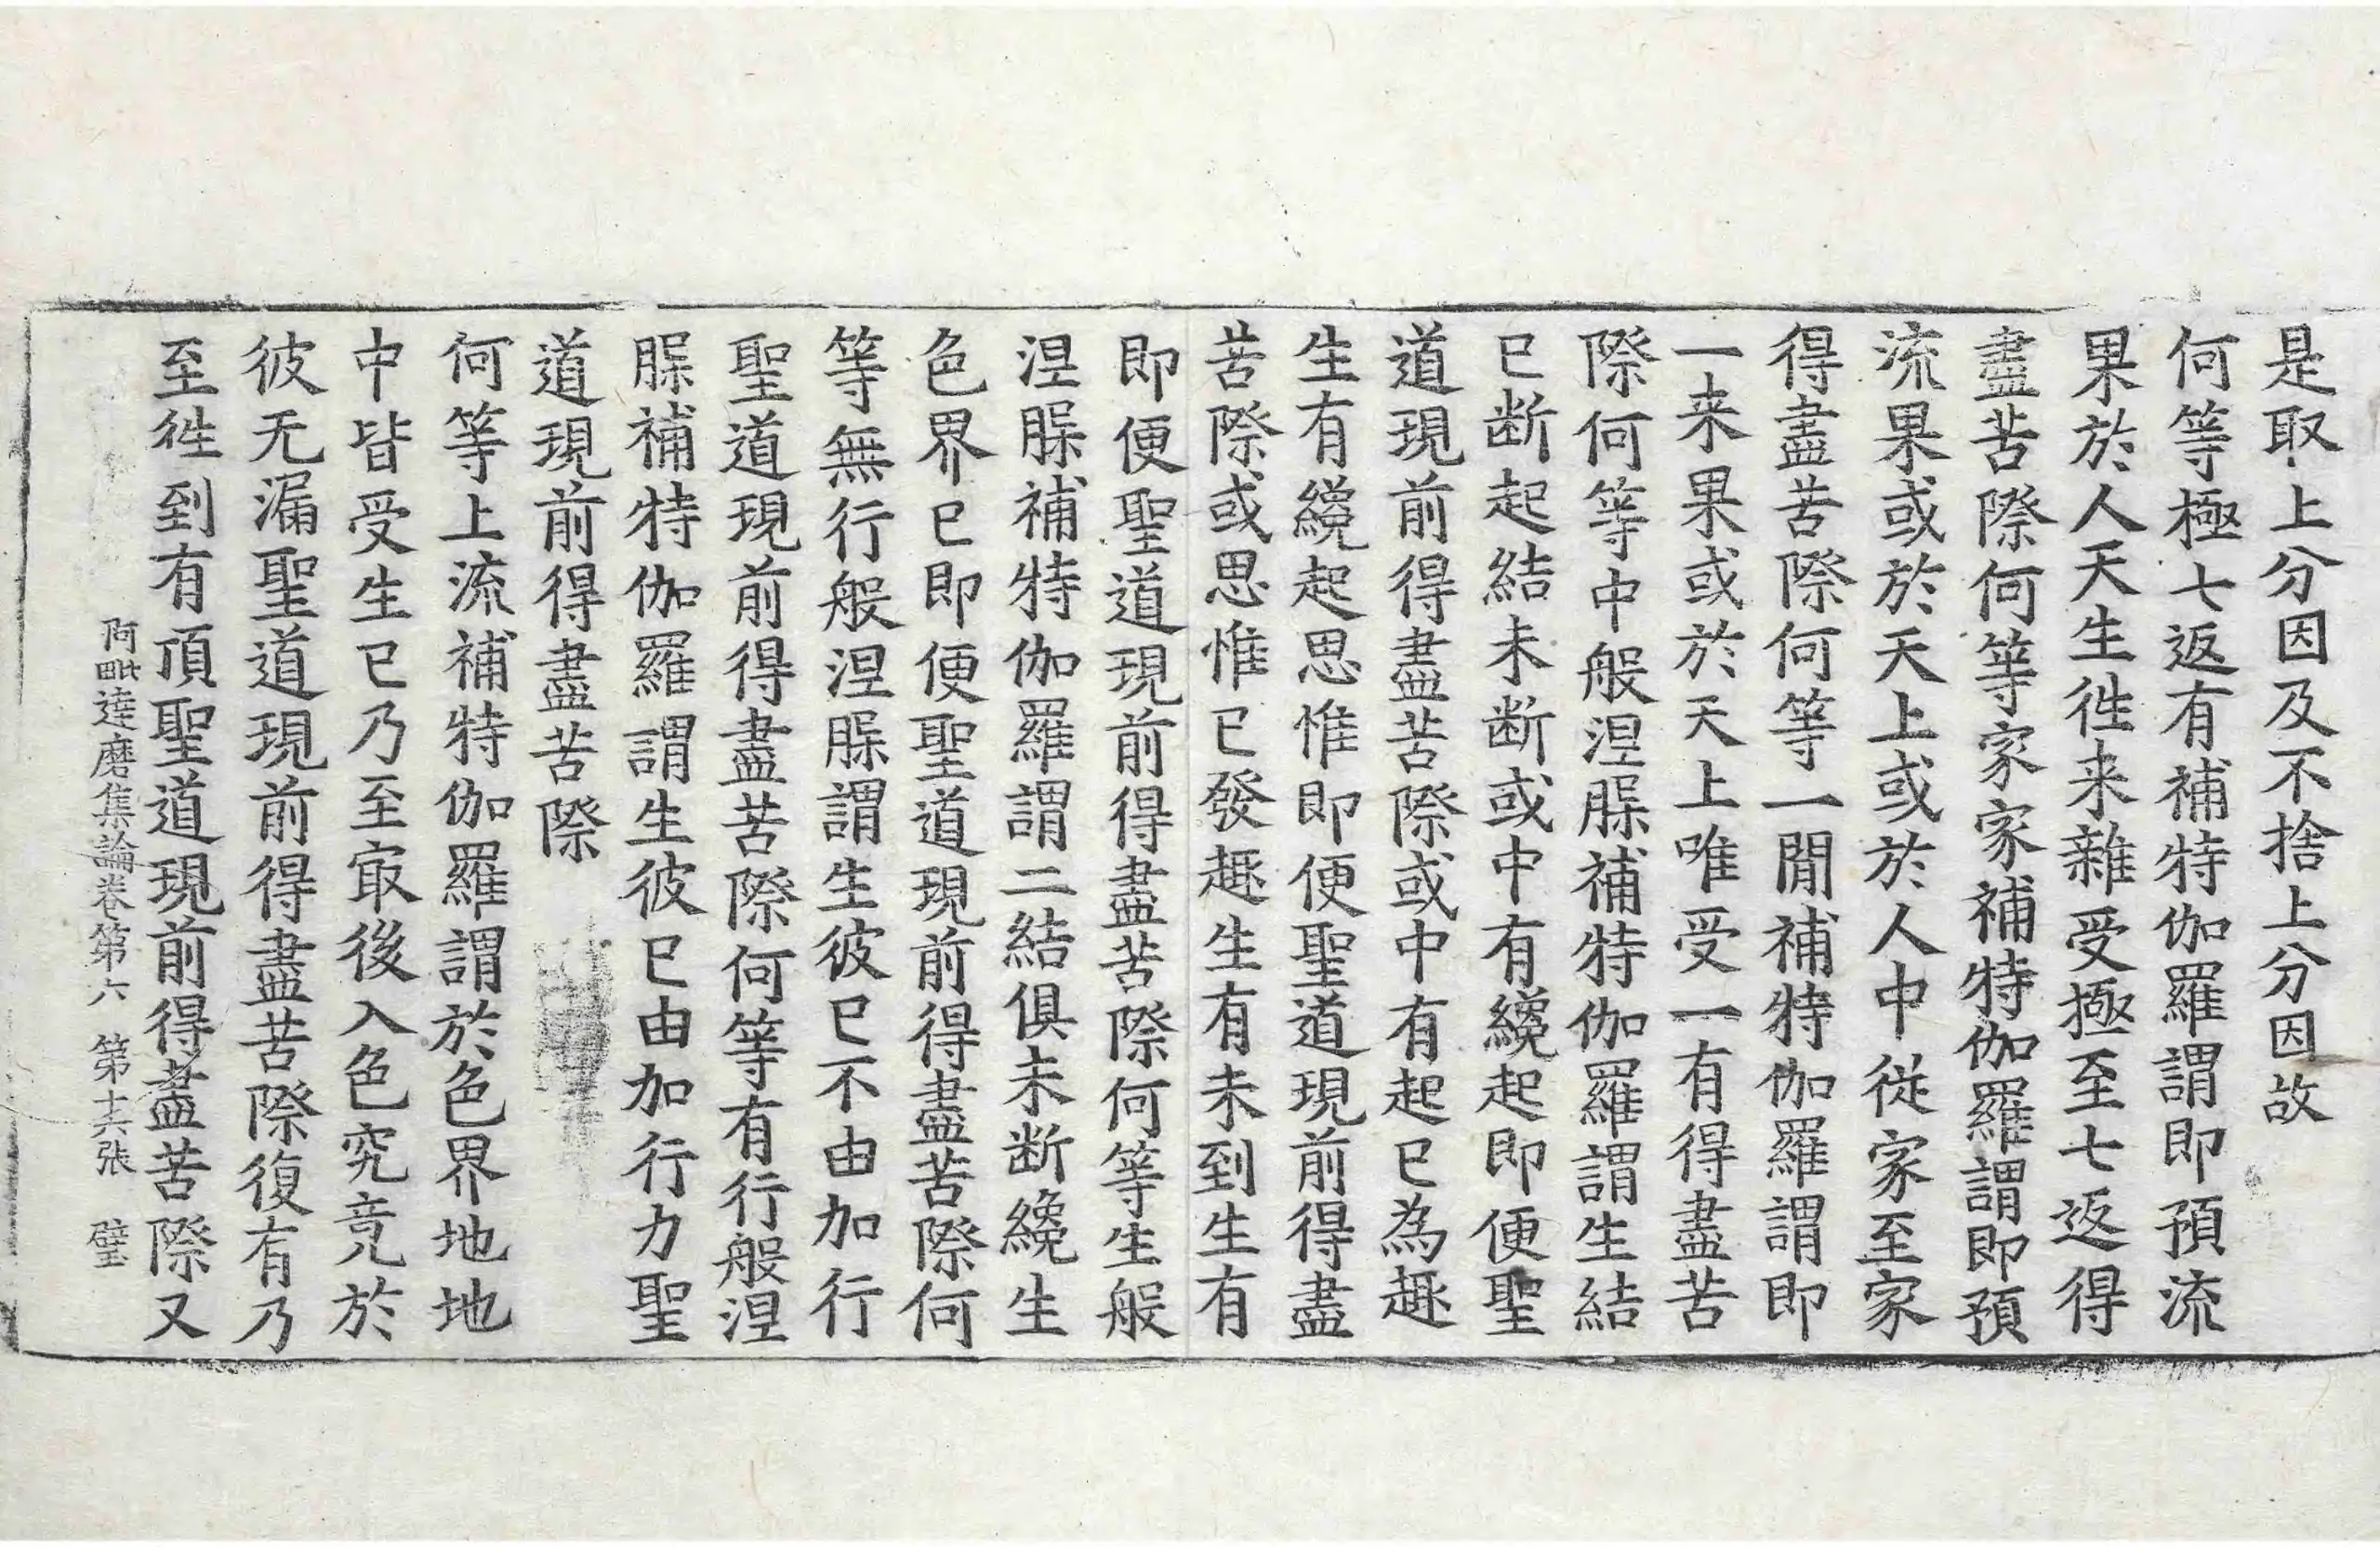 是取上分因及不捨上分因故
何等極七返有補特伽羅謂即預流
果於人天生徃来雜受極至七返得
盡苦際何等家家補特伽羅謂即預
流果或於天上或於人中從家至家
得盡苦際何等一閒補特伽羅謂即
一来果或於天上唯受一有得盡苦
際何等中般涅脲補特伽羅謂生結
已断起結未断或中有纔起即便聖
道現前得盡苦際或中有起已為趣
生有纔起思惟即便聖道現前得盡
苦際或思惟已發趣生有未到生有
即便聖道現前得盡苦際何等生般
涅脲補特伽羅謂二結俱未断纔生
色界已即便聖道現前得盡苦際何
等無行般涅脲謂生彼已不由加行
聖道現前得盡苦際何等有行般涅
脲補特伽羅謂生彼已由加行力聖
道現前得盡苦際
何等上流補特伽羅謂於色界地地
中皆受生已乃至㝡後入色究竟於
彼无漏聖道現前得盡苦際復有乃
至徃到有頂聖道現前得盡苦際又
阿毗達磨集論卷第六 第十六張 璧